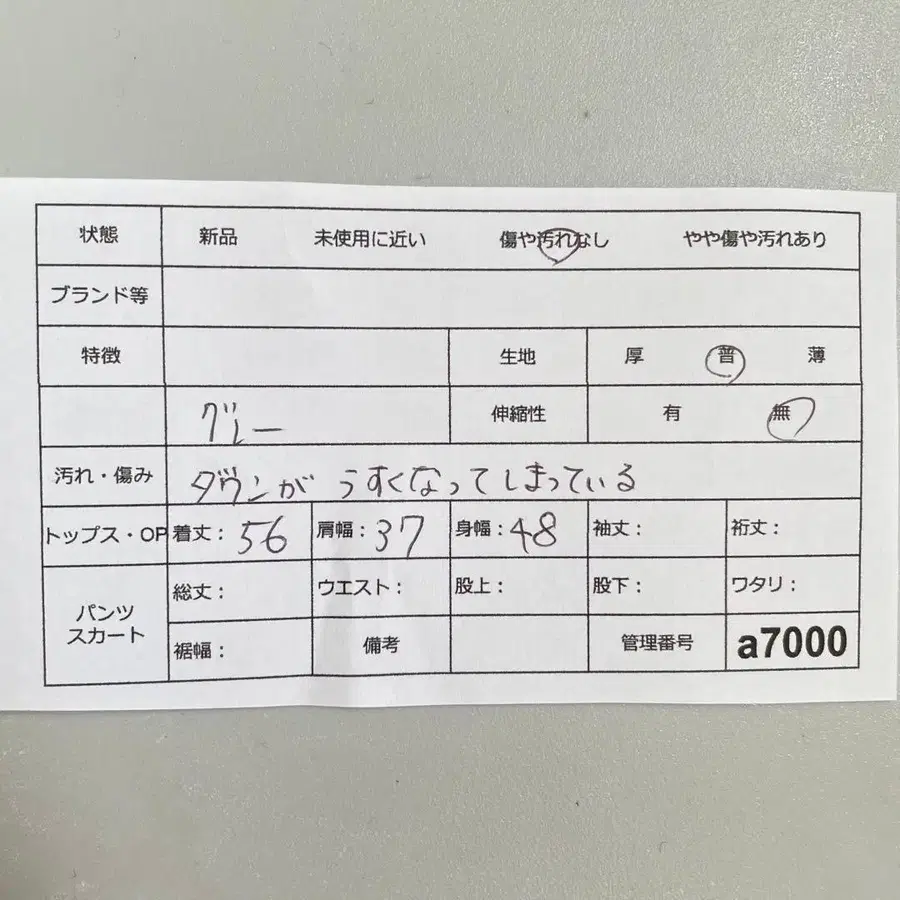 状態 新品 未使用に近い 傷や汚れなし やや傷や汚れあり
ブランド等
特徴 生地 厚 普 薄
グレー 伸縮性 有 無
汚れ・傷み ダウンが うすくなってしまっている
トップス・OP 着丈: 56 肩幅: 37 身幅: 48 袖丈: 裄丈:
パンツ スカート 総丈: ウエスト: 股上: 股下: ワタリ:
裾幅: 備考 管理番号 a7000